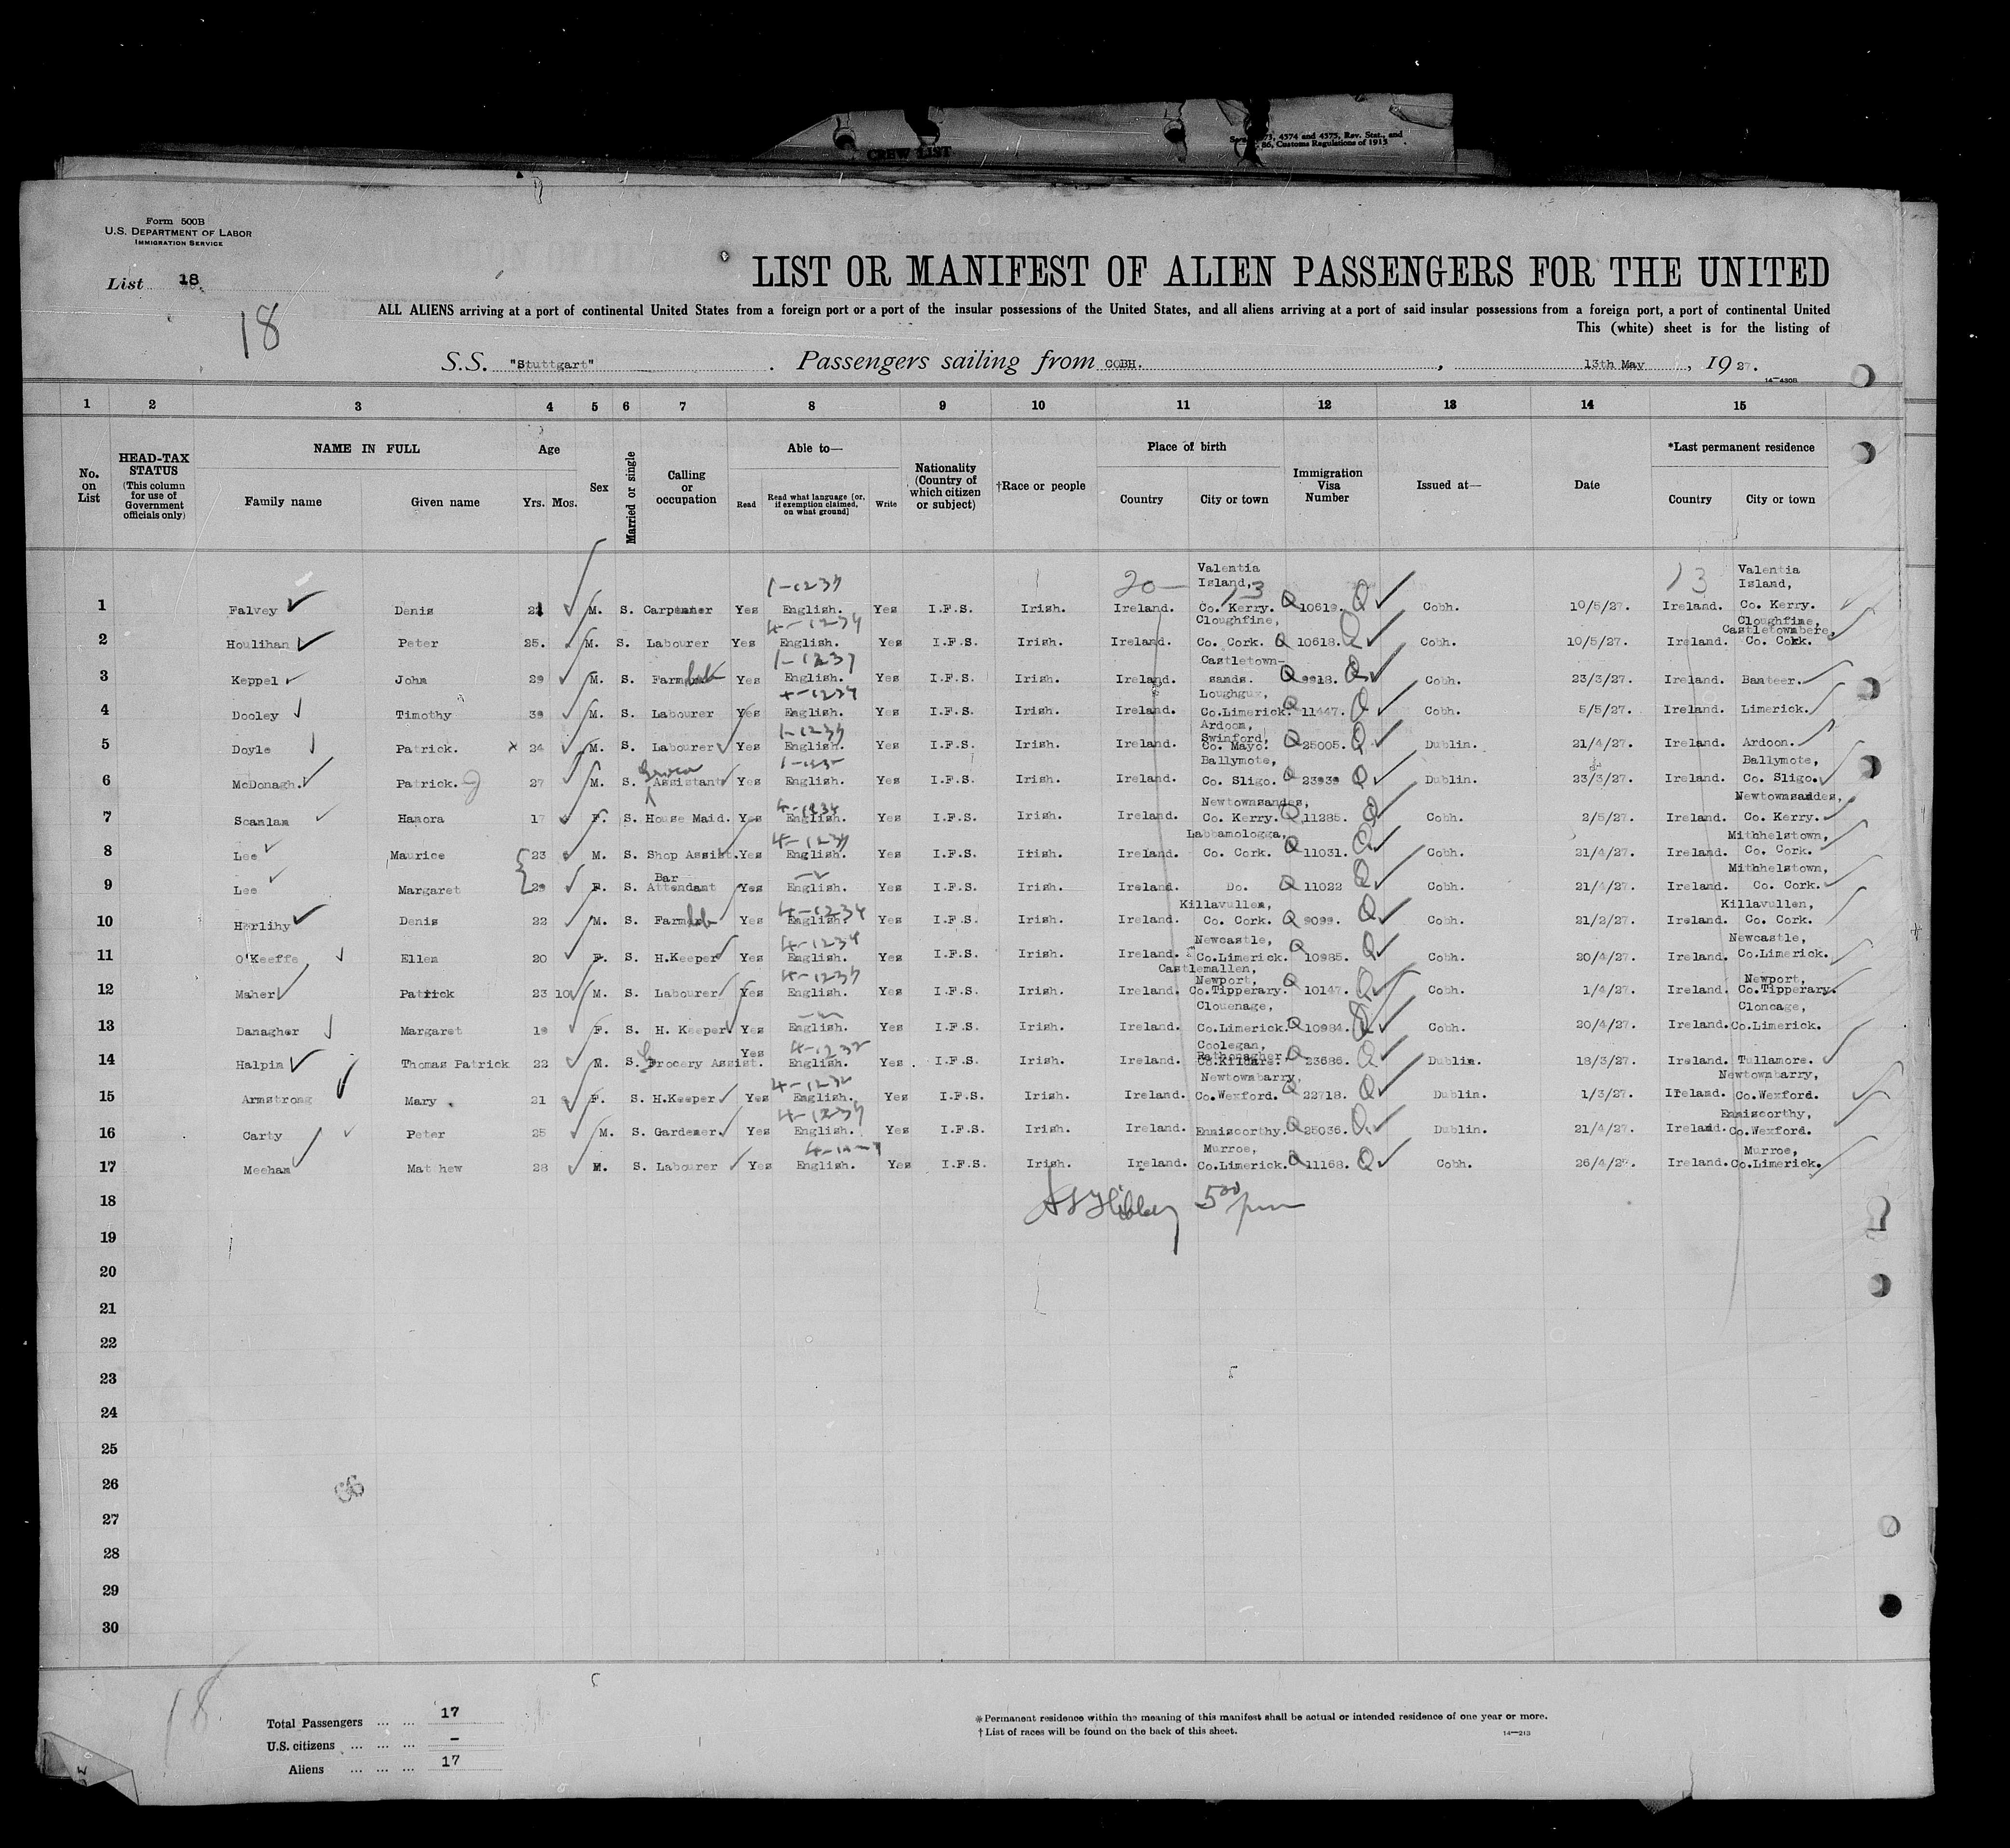 CREW LIST
4374 and 4375, Rev. Stat., and
86, Customs Regulations of 1915
Form 500B
U.S. DEPARTMENT OF LABOR
IMMIGRATION SERVICE
List 18
18
LIST OR MANIFEST OF ALIEN PASSENGERS FOR THE UNITED
ALL ALIENS arriving at a port of continental United States from a foreign port or a port of the insular possessions of the United States, and all aliens arriving at a port of said insular possessions from a foreign port, a port of continental United
This (white) sheet is for the listing of
S.S. "Stuttgart" . Passengers sailing from COBH. , 13th May , 1927.
14—430B
1 2 3 4 5 6 7 8 9 10 11 12 13 14 15
No. on List
HEAD-TAX STATUS (This column for use of Government officials only)
NAME IN FULL Family name Given name
Age Yrs. Mos.
Sex
Married or single
Calling or occupation
Able to— Read Read what language [or, if exemption claimed, on what ground] Write
Nationality (Country of which citizen or subject)
†Race or people
Place of birth Country City or town
Immigration Visa Number
Issued at—
Date
*Last permanent residence Country City or town
1 Falvey Denis 21 M. S. Carpenter Yes English. Yes I.F.S. Irish. Ireland. Valentia Island, Co. Kerry. Q 10619. Q Cobh. 10/5/27. Ireland. Valentia Island, Co. Kerry.
2 Houlihan Peter 25. M. S. Labourer Yes English. Yes I.F.S. Irish. Ireland. Cloughfine, Co. Cork. Q 10618. Q Cobh. 10/5/27. Ireland. Cloughfine, Castletownbere, Co. Cork.
3 Keppel John 29 M. S. Farm lab Yes English. Yes I.F.S. Irish. Ireland. Castletown-sands. Q 9918. Q Cobh. 23/3/27. Ireland. Banteer.
4 Dooley Timothy 39 M. S. Labourer Yes English. Yes I.F.S. Irish. Ireland. Loughgux, Co.Limerick. Q 11447. Q Cobh. 5/5/27. Ireland. Limerick.
5 Doyle Patrick. x 24 M. S. Labourer Yes English. Yes I.F.S. Irish. Ireland. Ardoon, Swinford, Co. Mayo. Q 25005. Q Dublin. 21/4/27. Ireland. Ardoon.
6 McDonagh. Patrick. 27 M. S. Grocer Assistant Yes English. Yes I.F.S. Irish. Ireland. Ballymote, Co. Sligo. Q 23939 Q Dublin. 23/3/27. Ireland. Ballymote, Co. Sligo.
7 Scanlan Hanora 17 F. S. House Maid. Yes English. Yes I.F.S. Irish. Ireland. Newtownsandes, Co. Kerry. Q 11285. Q Cobh. 2/5/27. Ireland. Newtownsandes, Co. Kerry.
8 Lee Maurice 23 M. S. Shop Assist. Yes English. Yes I.F.S. Irish. Ireland. Labbamologga, Co. Cork. Q 11031. Q Cobh. 21/4/27. Ireland. Mithhelstown, Co. Cork.
9 Lee Margaret 29 F. S. Bar Attendant Yes English. Yes I.F.S. Irish. Ireland. Do. Q 11022 Q Cobh. 21/4/27. Ireland. Mithhelstown, Co. Cork.
10 Herlihy Denis 22 M. S. Farm lab Yes English. Yes I.F.S. Irish. Ireland. Killavullen, Co. Cork. Q 9099. Q Cobh. 21/2/27. Ireland. Killavullen, Co. Cork.
11 O'Keeffe Ellen 20 F. S. H.Keeper Yes English. Yes I.F.S. Irish. Ireland. Newcastle, Co.Limerick. Q 10985. Q Cobh. 20/4/27. Ireland. Newcastle, Co.Limerick.
12 Maher Patrick 23 10 M. S. Labourer Yes English. Yes I.F.S. Irish. Ireland. Castlemallen, Newport, Co.Tipperary. Q 10147. Q Cobh. 1/4/27. Ireland. Newport, Co.Tipperary.
13 Danagher Margaret 19 F. S. H. Keeper Yes English. Yes I.F.S. Irish. Ireland. Clouenage, Co.Limerick. Q 10984. Q Cobh. 20/4/27. Ireland. Cloncage, Co.Limerick.
14 Halpin Thomas Patrick 22 M. S. Grocery Assist. Yes English. Yes . I.F.S. Irish. Ireland. Coolegan, Rathonagher, Co.Kildare. Q 23686. Q Dublin. 18/3/27. Ireland. Tullamore.
15 Armstrong Mary 21 F. S. H.Keeper Yes English. Yes I.F.S. Irish. Ireland. Newtownbarry, Co.Wexford. Q 22718. Q Dublin. 1/3/27. Ireland. Newtownbarry, Co.Wexford.
16 Carty Peter 25 M. S. Gardener. Yes English. Yes I.F.S. Irish. Ireland. Enniscorthy. Q 25036. Q Dublin. 21/4/27. Ireland. Enniscorthy, Co.Wexford.
17 Meehan Mathew 28 M. S. Labourer Yes English. Yes I.F.S. Irish. Ireland. Murroe, Co.Limerick. Q 11168. Q Cobh. 26/4/27. Ireland. Murroe, Co.Limerick.
18 5 00 pm
19
20
21
22
23
24
25
26
27
28
29
30
18
Total Passengers ... ... 17
U.S. citizens ... ... ... –
Aliens ... ... ... 17
*Permanent residence within the meaning of this manifest shall be actual or intended residence of one year or more.
†List of races will be found on the back of this sheet.
14—213